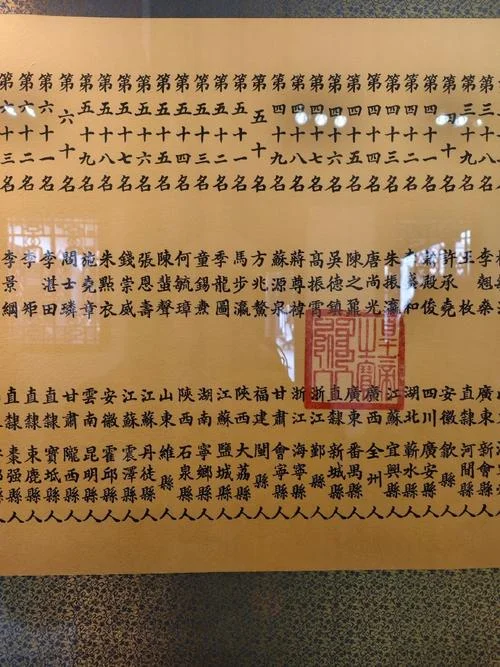 第三十九名 王枚
第四十名 許承堯 安徽歙縣人
第四十一名 殿俊 四川廣安縣人
第四十二名 湖北蘄水縣人
第四十三名 朱振瀛 江蘇宜興縣人
第四十四名 唐尚光 廣西全州人
第四十五名 陳之鼐 廣東番禺縣人
第四十六名 吳德鎮 直隸新城縣人
第四十七名 高振霄 浙江鄞縣人
第四十八名 蔣尊禕 浙江海寧縣人
第四十九名 蘇源泉 甘肅會寧縣人
第五十名 方兆鰲 福建閩縣人
第五十一名 馬步瀛 陝西大荔縣人
第五十二名 季龍圖 江蘇鹽城縣人
第五十三名 童錫燾 湖南寧鄉縣人
第五十四名 何毓璋 陝西石泉縣人
第五十五名 陳蜚聲 山東濰縣人
第五十六名 張恩壽 江蘇丹徒縣人
第五十七名 錢崇威 江蘇震澤縣人
第五十八名 朱點衣 安徽霍邱縣人
第五十九名 施堯章 雲南昆明縣人
第六十名 閻士璘 甘肅隴西縣人
第六十一名 李湛田 直隸寶坻縣人
第六十二名 李榘 直隸束鹿縣人
第六十三名 李景綱 直隸棗强縣人
皇帝之寶